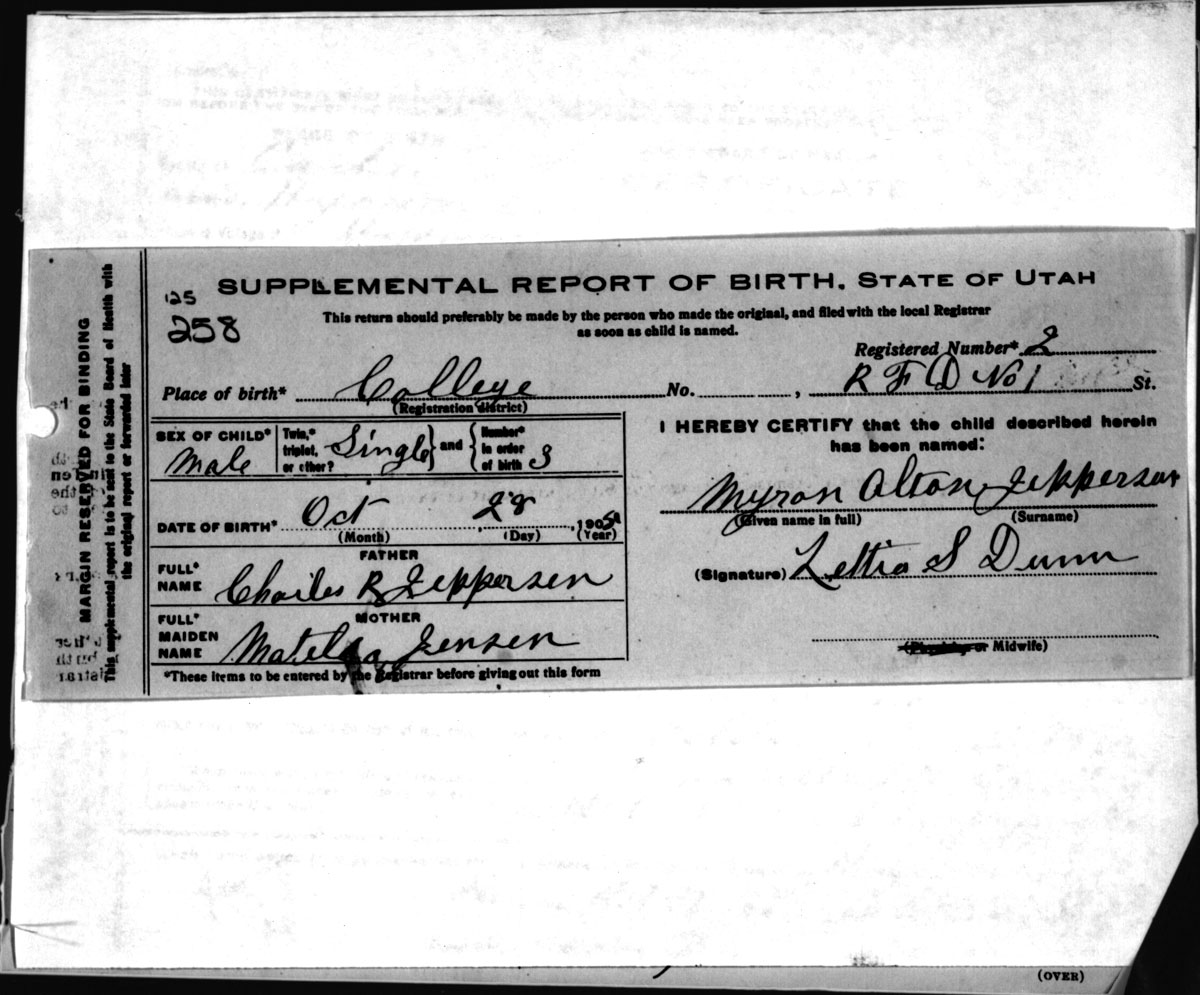 SUPPLEMENTAL REPORT OF BIRTH. STATE OF UTAH
125
258
This return should preferably be made by the person who made the original, and filed with the local Registrar
as soon as child is named.
Registered Number* 2
Place of birth* College No. , R F D No 1 St.
(Registration district)
SEX OF CHILD* Male
Twin,* triplet, or other? Single and Number* in order of birth 3
DATE OF BIRTH* Oct 28, 190
(Month) (Day) (Year)
FATHER
FULL* NAME Charles R Jeppersen
MOTHER
FULL* MAIDEN NAME Matelda Jensen
*These items to be entered by the Registrar before giving out this form
I HEREBY CERTIFY that the child described herein
has been named:
Myron Alton Jeppersen
(Given name in full) (Surname)
(Signature) Lettia S Dunn
(Physician or Midwife)
MARGIN RESERVED FOR BINDING
This supplemental report is to be sent to the State Board of Health with
the original report or forwarded later
(OVER)